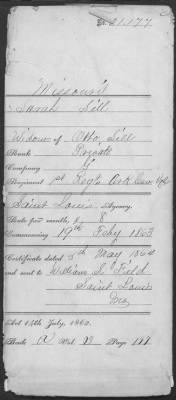 21.177
Missouri
Sarah Sill
Widow of Otto Sill
Rank Private
Company
Regiment 1st Regt Ark Cav Vols
Saint Louis Agency.
Rate per month, $ 8
Commencing 19th Feby 1863
Certificate dated 5th May 1864
and sent to William S. Field
Saint Louis
Mo
Act 14th July, 1862.
Book Vol. Page 117